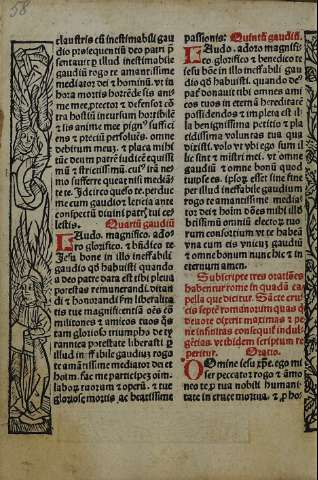 58
claustris cū inestimabili gau
dio prosequentiū deo patri p̄
sentauit p illud inestimabile
gaudiū rogo te amantissime
mediator dei ⁊ hominū. vt in
hora mortis horrēde sis ani
me mee ptector ⁊ defensor cō
tra hostiū incursum horribilē
⁊ sis anime mee pign⁹ suffici
ens ⁊ preciū psolutōis. omne
debitum meuȝ. ⁊ placa mihi
tūc deum patrē iudicē equissi
mū ⁊ strictissimū. cui⁹ irā ne
mo sufferre queat nisi median
te te. Id circo queso te. perduc
me cum gaudio ⁊ leticia ante
conspectū diuini patr̄ tui ce
lestis. Quartū gaudiū
Laudo. magnifico. ado
ro glorifico. ⁊ bn̄dico te
Jesu bone in illo ineffabili
gaudio qd̄ habuisti quando
a deo patre data est tibi plena
potestas remunerandi. ditan
di ⁊ honorandi fm̄ liberalita
tis tue magnificentiā oēs cō
militones ⁊ amicos tuos qs
tam glorioso triumpho de ty
rannica potestate liberasti p
illud inffabile gaudiuȝ rogo
te amātissime mediator dei et
hoīm. fac me participeȝ oīm
laboȝ tuorum ⁊ operū. ⁊ tue
gloriose mortis. ac beatissime
passionis. Quintū gaudiū.
Laudo. adoro magnifi
co glorifico ⁊ benedico te
iesu bōe in illo ineffabili gau
dio qd̄ habuisti. quando de⁹
pat̄ donauit tibi omnes ami
cos tuos in eternā hereditatē
possidendos ⁊ impleta est il
la benignissima petitio ⁊ pla
cidissima voluntas tua qua
dixisti. volo vt vbi ego sum il
lic sint ⁊ mistri mei. vt omne
gaudiū ⁊ omne bonū quod
tu ipse es. ipsoȝ esset sine fine
per illud ineffabile gaudium
rogo te amantissime mediator
dei ⁊ hoīm dōes mihi ⁊
oībtissimū omniū electoȝ tuo
rum consortium vt te habeā
vna cum eis vnicuȝ gaudiū
⁊ omne bonum nunc hic ⁊ in
eternum amen.
Subscripte tres oratiōes
habentur rome in quadā ca
pella que dicitur. Sācte cruc̄
cis septē romanorum quas q̄
deuote dixerit maximas ⁊ pe
ne infinitas consequit̄ indul
gētias. vt ibidem scriptum re
peritur. Oratio.
O Domine iesu xp̄e. ego mi
ser peccator rogo ⁊ āmo
neo te. p tua nobili humani
tate in cruce mortua. ⁊ p ho⸗